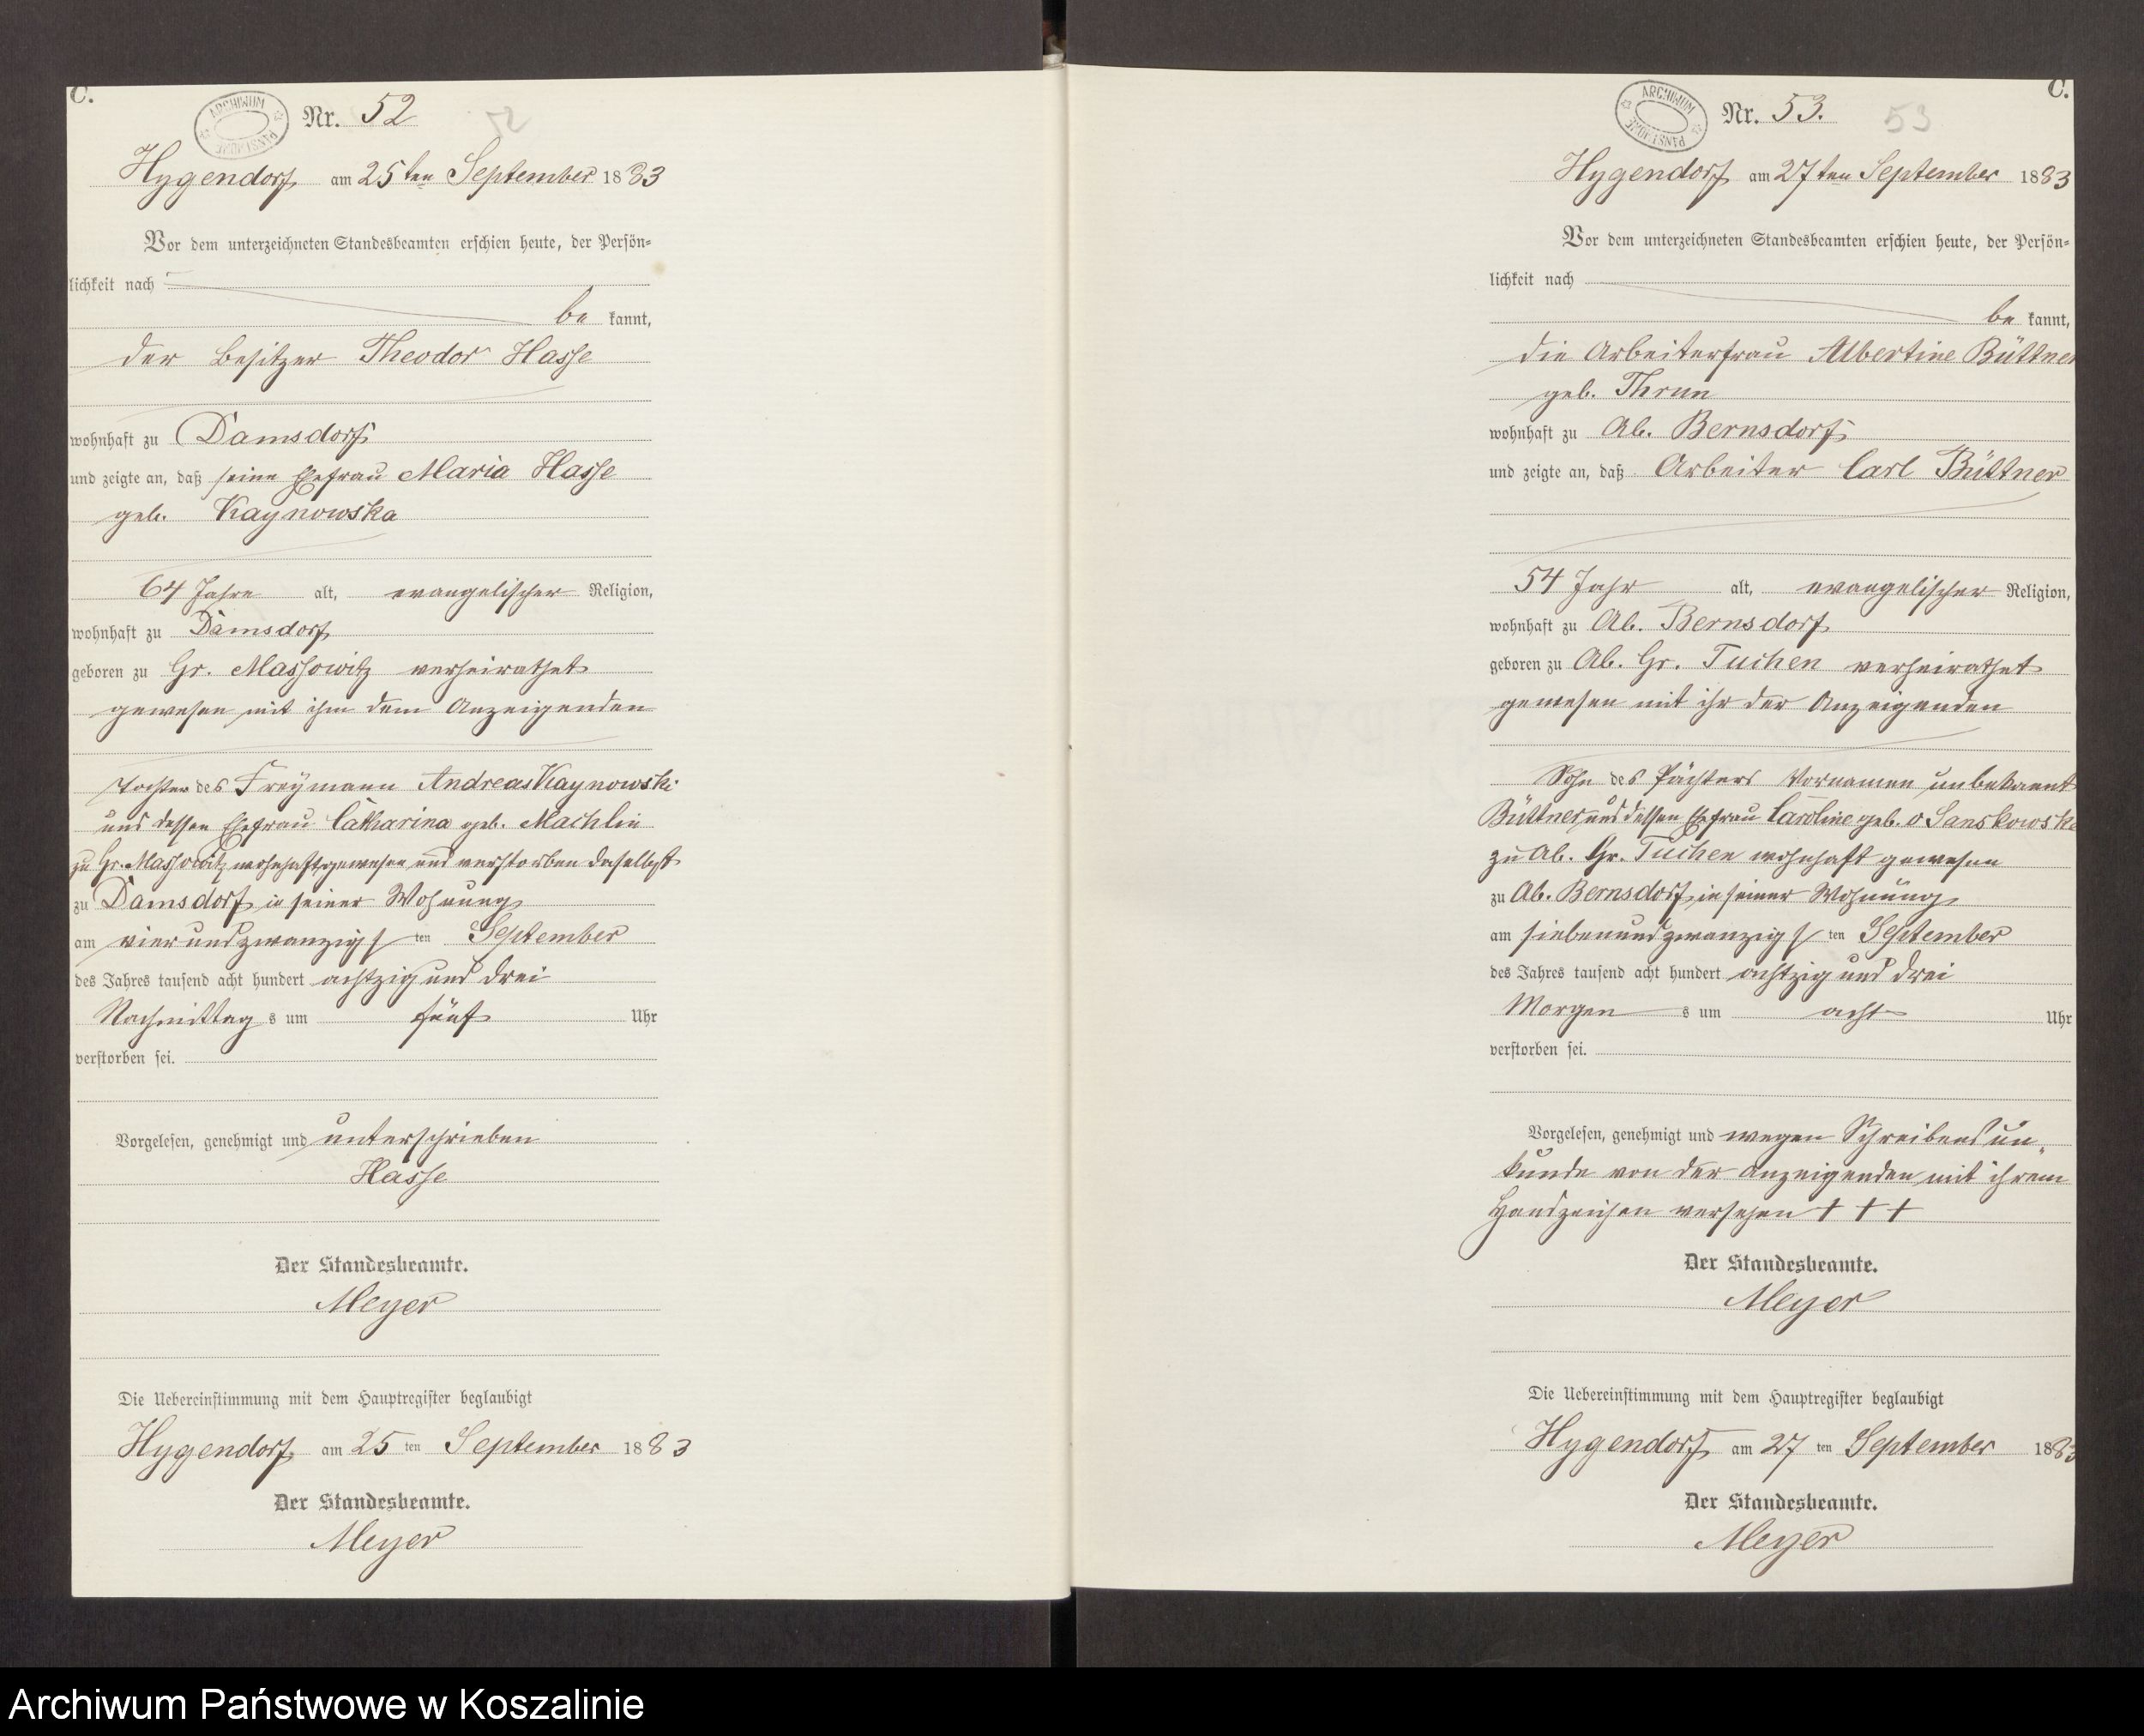 C.
ARCHIWUM PAŃSTWOWE
Nr. 52
52
Hygendorf am 25ten September 1883
Vor dem unterzeichneten Standesbeamten erschien heute, der Persön=
lichkeit nach
be kannt,
der Besitzer Theodor Hasse
wohnhaft zu Damsdorf
und zeigte an, daß seine Ehefrau Maria Hasse
geb. Kaynowska
64 Jahre alt, evangelischer Religion,
wohnhaft zu Damsdorf
geboren zu Gr. Massowitz verheirathet
gewesen mit ihm dem Anzeigenden
Tochter des Freymann Andreas Kaynowski
und dessen Ehefrau Catharina geb. Machlin
zu Gr. Massowitz wohnhaft gewesen und verstorben daselbst
zu Damsdorf in seiner Wohnung
am vierundzwanzigsten September
des Jahres tausend acht hundert achtzig und drei
Nachmittags um fünf Uhr
verstorben sei.
Vorgelesen, genehmigt und unterschrieben
Hasse
Der Standesbeamte.
Meyer
Die Uebereinstimmung mit dem Hauptregister beglaubigt
Hygendorf am 25ten September 1883
Der Standesbeamte.
Meyer
C.
ARCHIWUM PAŃSTWOWE
Nr. 53.
53
Hygendorf am 27ten September 1883
Vor dem unterzeichneten Standesbeamten erschien heute, der Persön=
lichkeit nach
be kannt,
die Arbeiterfrau Albertine Büttner
geb. Thrun
wohnhaft zu Ab. Bernsdorf
und zeigte an, daß Arbeiter Carl Büttner
54 Jahr alt, evangelischer Religion,
wohnhaft zu Ab. Bernsdorf
geboren zu Ab. Gr. Tuchen verheirathet
gewesen mit ihr der Anzeigenden
Sohn des Pächters Vornamen unbekannt
Büttner und dessen Ehefrau Caroline geb. v. Sanskowska
zu Ab. Gr. Tuchen wohnhaft gewesen
zu Ab. Bernsdorf in seiner Wohnung
am siebenundzwanzigsten September
des Jahres tausend acht hundert achtzig und drei
Morgens um acht Uhr
verstorben sei.
Vorgelesen, genehmigt und wegen Schreibens un„
kunde von der Anzeigenden mit ihrem
Handzeichen versehen + + +
Der Standesbeamte.
Meyer
Die Uebereinstimmung mit dem Hauptregister beglaubigt
Hygendorf am 27ten September 1883
Der Standesbeamte.
Meyer
Archiwum Państwowe w Koszalinie